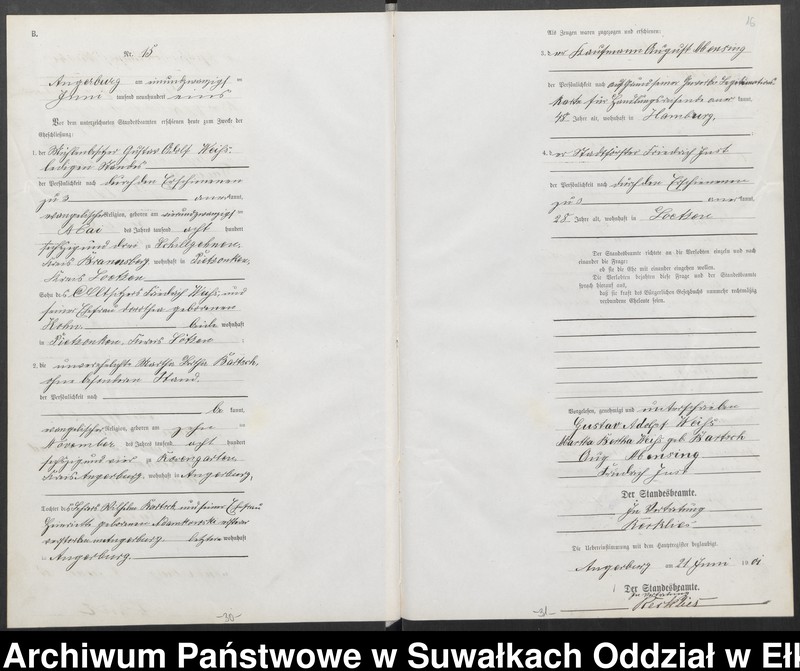 B.
Nr. 15
Angerburg am einundzwanzigsten
Juni tausend neunhundert eins
Vor dem unterzeichneten Standesbeamten erschienen heute zum Zwecke der
Eheschließung:
1. der Mühlenbesitzer Gustav Adolf Weiß
ledigen Standes
der Persönlichkeit nach durch den Erschienenen
zu 3 anerkannt,
evangelischer Religion, geboren am
Mai des Jahres tausend acht hundert
sechzig und drei zu
Kreis Braunsberg, wohnhaft in Pietzonken,
Kreis Loetzen
Sohn des Altsitzers Friedrich Weiß und
seiner Ehefrau Dorothea geborenen
Hohn beide wohnhaft
in Pietzonken, Kreis Lötzen ;
2. die unverehelichte Martha Bertha Bartsch,
ohne besonderen Stand.
der Persönlichkeit nach
be kannt,
evangelischer Religion, geboren am zehn ten
November des Jahres tausend acht hundert
sechzig und vier zu Rosengarten
Kreis Angerburg, wohnhaft in Angerburg,
Tochter des Lehrers Wilhelm Bartsch und seiner Ehefrau
Henriette geborenen Adamkowski ersterer
verstorben in Angerburg letztere wohnhaft
in Angerburg.
-30-
16
Als Zeugen waren zugezogen und erschienen:
3. der Kaufmann August Mensing
der Persönlichkeit nach auf Grund seiner Gewerbe Legitimations
karte für Handlungsreisende aner kannt,
48 Jahre alt, wohnhaft in Hamburg,
;
4. der Stadtförster Friedrich Just
der Persönlichkeit nach durch den Erschienenen
zu 3 aner kannt,
28 Jahre alt, wohnhaft in Loetzen
Der Standesbeamte richtete an die Verlobten einzeln und nach
einander die Frage:
ob sie die Ehe mit einander eingehen wollen.
Die Verlobten bejahten diese Frage und der Standesbeamte
sprach hierauf aus,
daß sie kraft des Bürgerlichen Gesetzbuchs nunmehr rechtmäßig
verbundene Eheleute seien.
Vorgelesen, genehmigt und unterschrieben
Gustav Adolf Weiß
Martha Bertha Weiß geb. Bartsch
Aug Mensing
Friedrich Just
Der Standesbeamte.
In Vertretung
Kerklies
Die Uebereinstimmung mit dem Hauptregister beglaubigt.
Angerburg am 21 Juni 1901
Der Standesbeamte.
In Vertretung
Kerklies
-31-
Archiwum Państwowe w Suwałkach Oddział w Eł